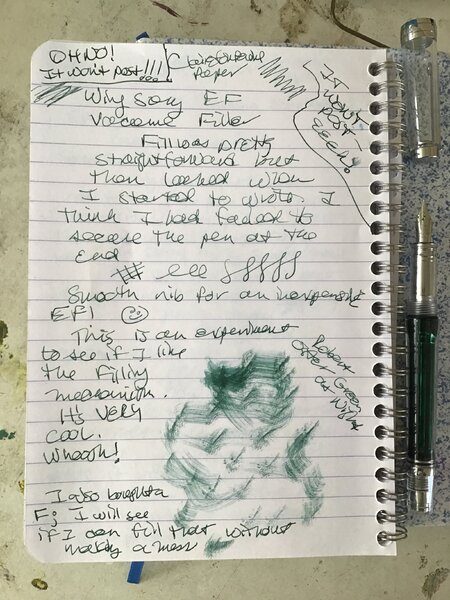 OH NO!
It won't post!!!!
Clairefontaine
Paper
IT
WON'T
POST
EEEK!
Wing Sung EF
Vacuume Filler
Fill was pretty
straightforward but
then leaked when
I started to write. I
think I had failed to
secure the pen at the
end
Smooth nib for an inexpensive
EF!
This is an experiment
to see if I like
the filling
mechanism.
It's VERY
cool.
Whoosh!
Robert
Oster Green
at Night
I also bought a
F; I will see
if I can fill that without
making a mess